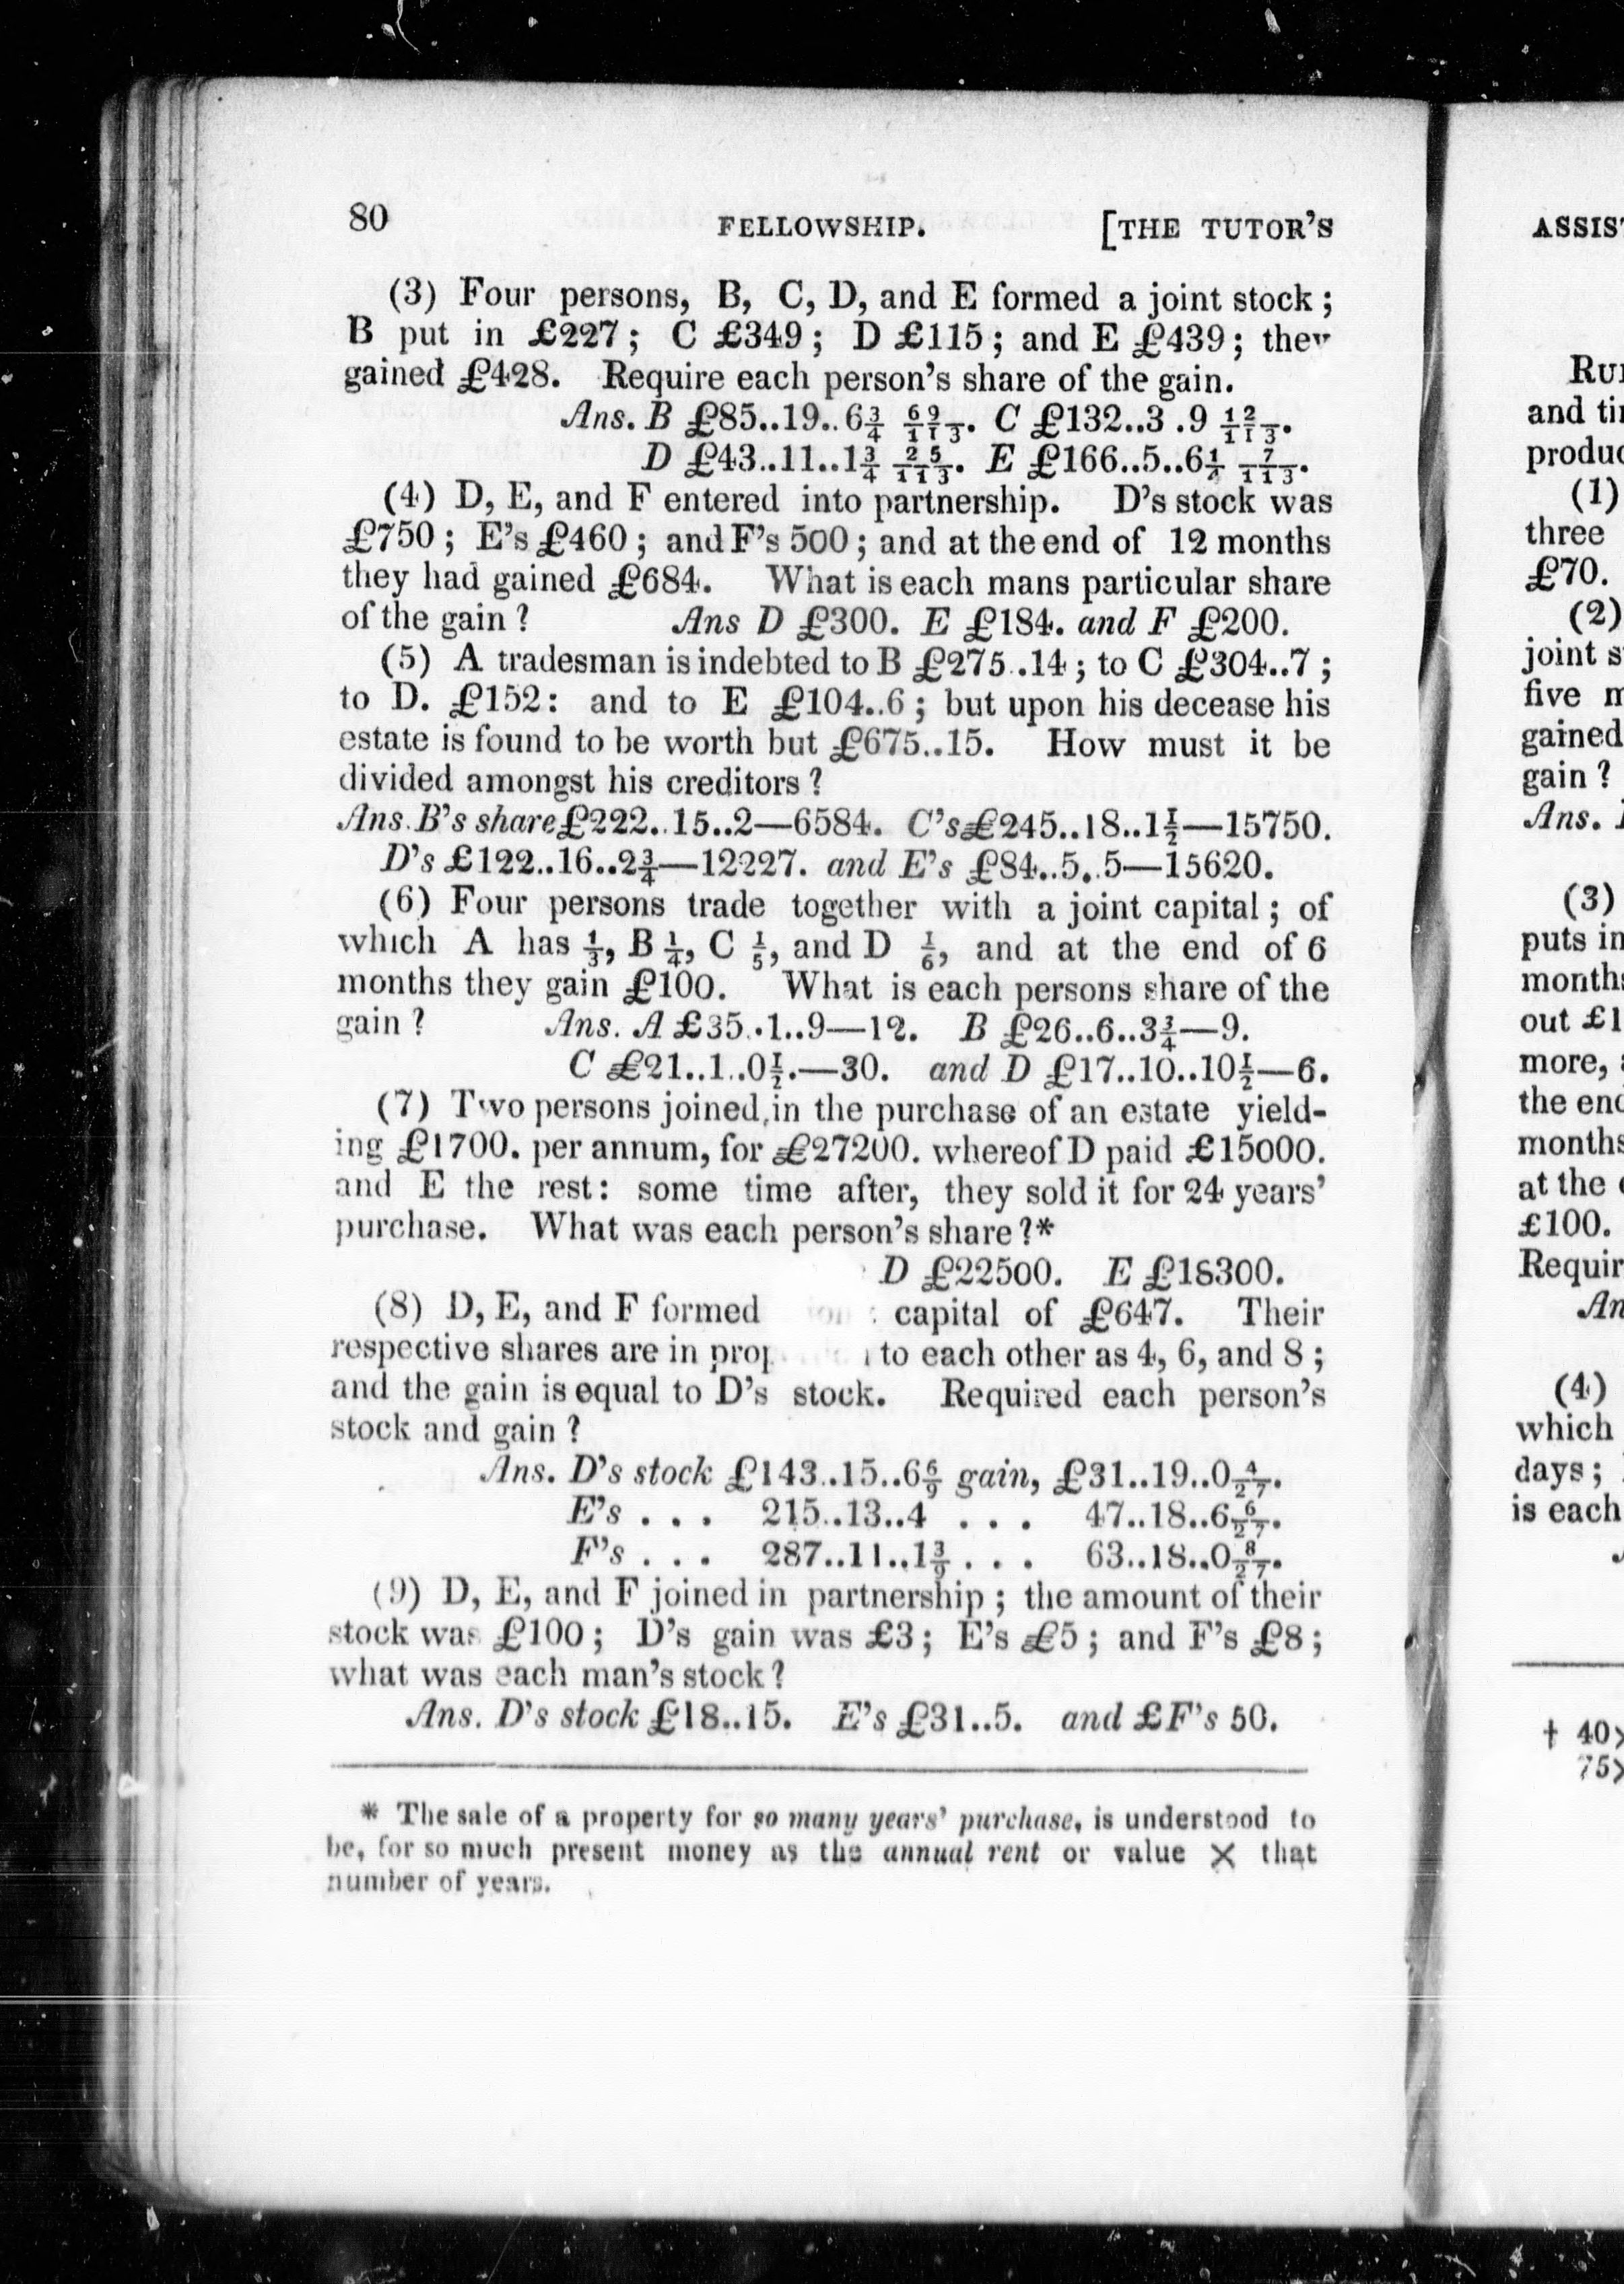 80 FELLOWSHIP. [THE TUTOR'S
(3) Four persons, B, C, D, and E formed a joint stock;
B put in £227; C £349; D £115; and E £439; they
gained £428. Require each person's share of the gain.
Ans. B £85..19..6¾ 69/113. C £132..3 .9 12/113.
D £43..11..1¾ 25/113. E £166..5..6½ 7/113.
(4) D, E, and F entered into partnership. D's stock was
£750; E's £460; and F's 500; and at the end of 12 months
they had gained £684. What is each mans particular share
of the gain? Ans D £300. E £184. and F £200.
(5) A tradesman is indebted to B £275..14; to C £304..7;
to D. £152: and to E £104..6; but upon his decease his
estate is found to be worth but £675..15. How must it be
divided amongst his creditors?
Ans. B's share £222..15..2—6584. C's £245..18..1½—15750.
D's £122..16..2¾—12227. and E's £84..5..5—15620.
(6) Four persons trade together with a joint capital; of
which A has ⅓, B ¼, C ⅕, and D ⅙, and at the end of 6
months they gain £100. What is each persons share of the
gain? Ans. A £35..1..9—12. B £26..6..3¾—9.
C £21..1..0½.—30. and D £17..10..10½—6.
(7) Two persons joined in the purchase of an estate yield-
ing £1700. per annum, for £27200. whereof D paid £15000.
and E the rest: some time after, they sold it for 24 years'
purchase. What was each person's share?*
D £22500. E £18300.
(8) D, E, and F formed capital of £647. Their
respective shares are in prop to each other as 4, 6, and 8;
and the gain is equal to D's stock. Required each person's
stock and gain?
Ans. D's stock £143..15..6 6/9 gain, £31..19..0 4/27.
E's . . . 215..13..4 . . . 47..18..6 6/27.
F's . . . 287..11..1 3/9 . . . 63..18..0 8/27.
(9) D, E, and F joined in partnership; the amount of their
stock was £100; D's gain was £3; E's £5; and F's £8;
what was each man's stock?
Ans. D's stock £18..15. E's £31..5. and £F's 50.
* The sale of a property for so many years' purchase, is understood to
be, for so much present money as the annual rent or value × that
number of years.
ASSIS
and
produc
(1)
three
£70.
(2)
joint
five
gained
gain?
Ans.
(3)
puts in
months
out £1
more,
the
months
at the
£100.
Requir
(4)
which
days;
is each
† 40×
75×